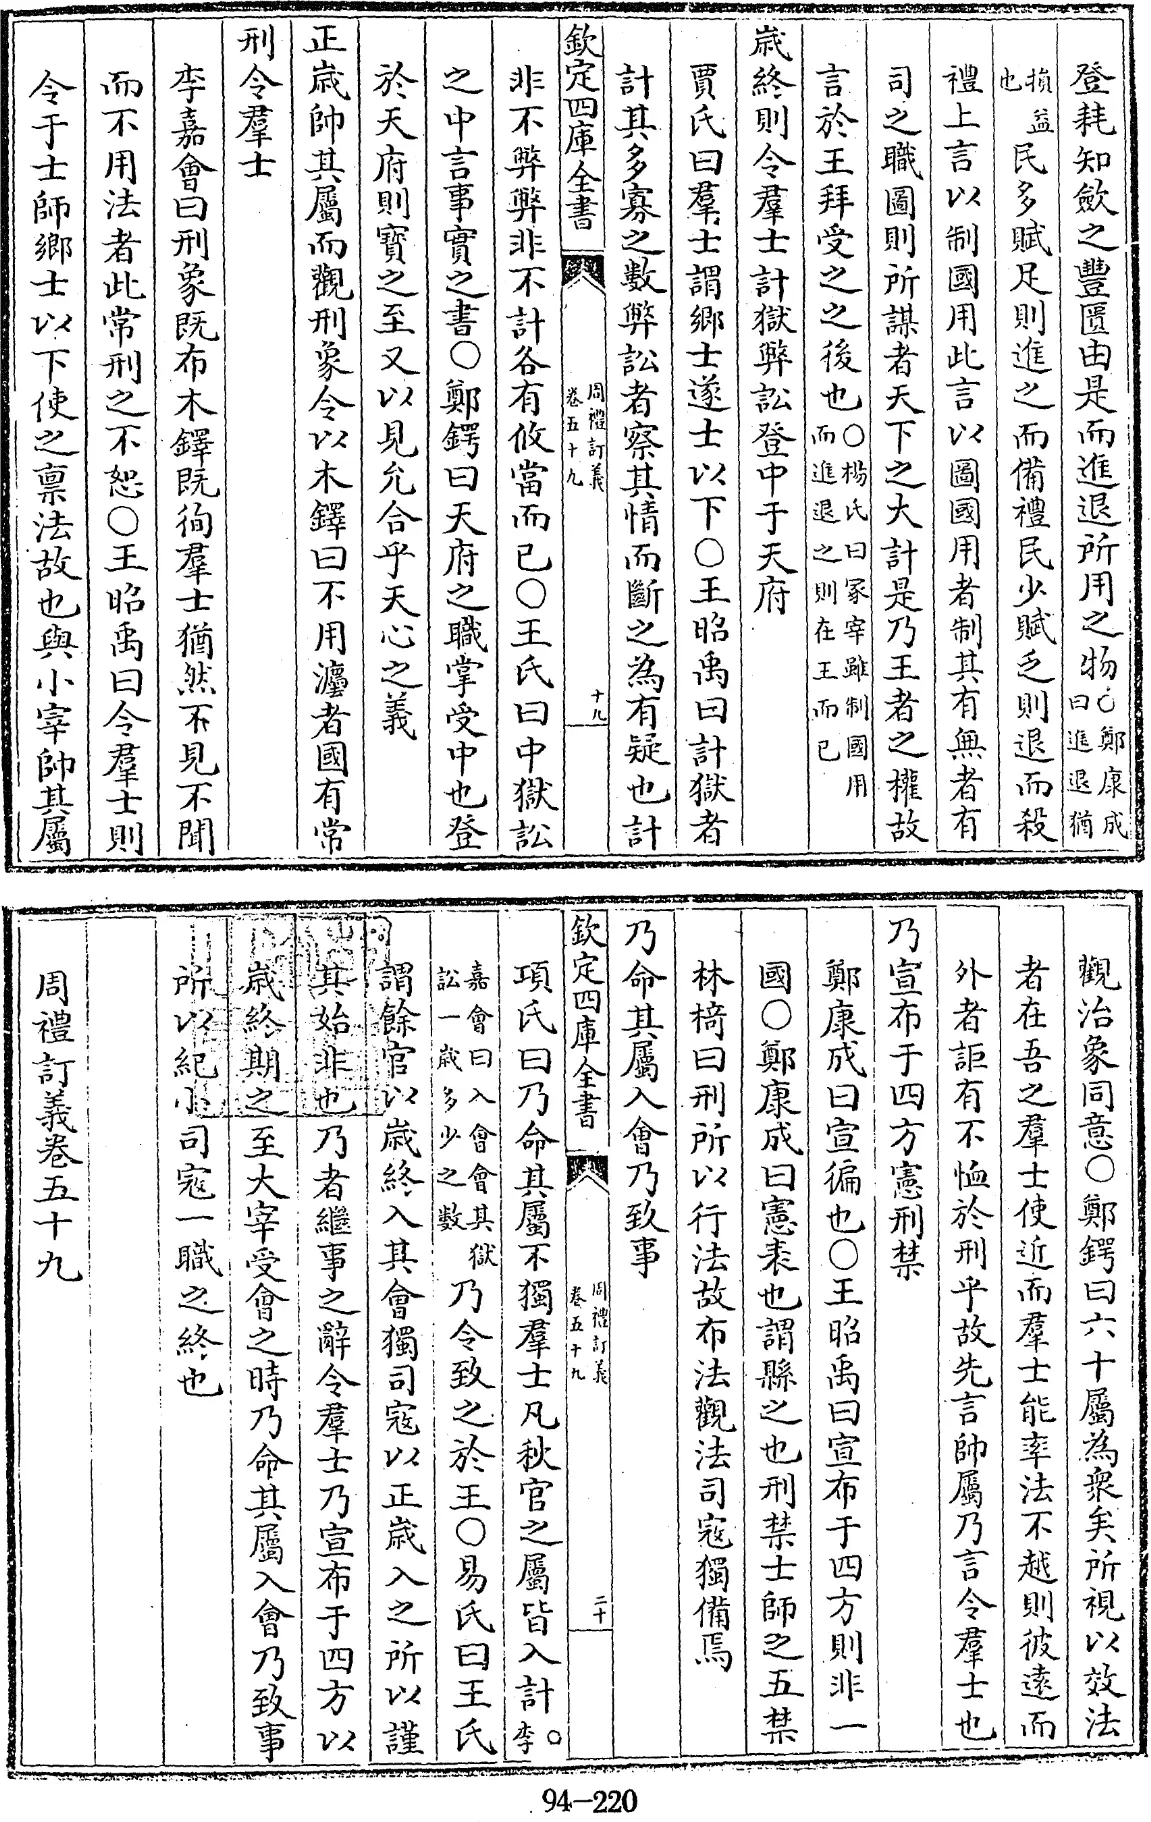 登耗知斂之豐匱由是而進退所用之物○鄭康成曰進退猶
損益也民多賦足則進之而備禮民少賦乏則退而殺
禮上言以制國用此言以圖國用者制其有無者有
司之職圖則所謀者天下之大計是乃王者之權故
言於王拜受之之後也○楊氏曰冢宰雖制國用而進退之則在王而已
歳終則令羣士計獄弊訟登中于天府
賈氏曰羣士謂鄉士遂士以下○王昭禹曰計獄者
計其多寡之數弊訟者察其情而斷之為有疑也計
欽定四庫全書
周禮訂義
卷五十九
十九
非不弊弊非不計各有攸當而已○王氏曰中獄訟
之中言事實之書○鄭鍔曰天府之職掌受中也登
於天府則寳之至又以見允合乎天心之義
正歳帥其屬而觀刑象令以木鐸曰不用灋者國有常
刑令羣士
李嘉會曰刑象既布木鐸既徇羣士猶然不見不聞
而不用法者此常刑之不恕○王昭禹曰令羣士則
令于士師鄉士以下使之禀法故也與小宰帥其屬
觀治象同意○鄭鍔曰六十屬為衆矣所視以效法
者在吾之羣士使近而羣士能率法不越則彼逺而
外者詎有不恤於刑乎故先言帥屬乃言令羣士也
乃宣布于四方憲刑禁
鄭康成曰宣徧也○王昭禹曰宣布于四方則非一
國○鄭康成曰憲表也謂縣之也刑禁士師之五禁
林椅曰刑所以行法故布法觀法司寇獨備焉
乃命其屬入會乃致事
欽定四庫全書
周禮訂義
卷五十九
二十
項氏曰乃命其屬不獨羣士凡秋官之屬皆入計○李
嘉會曰入會會其獄訟一歳多少之數乃令致之於王○易氏曰王氏
謂餘官以歳終入其會獨司寇以正歳入之所以謹
其始非也乃者繼事之辭令羣士乃宣布于四方以
歳終期之至大宰受會之時乃命其屬入會乃致事
所以紀小司寇一職之終也
周禮訂義卷五十九
94-220